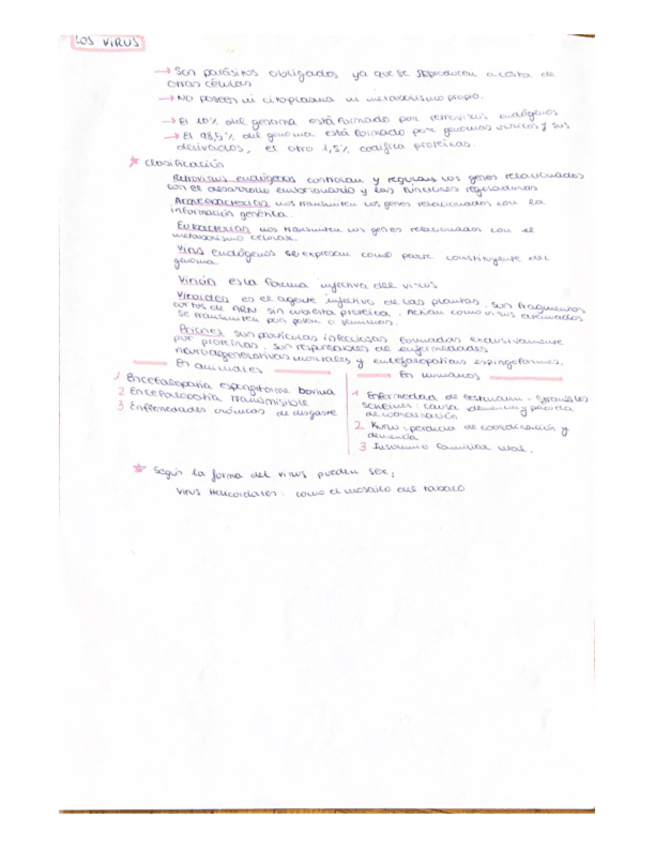 LOS VIRUS
→ Son parásitos obligados ya que se reproducen a costa de
otras células
→ NO poseen ni citoplasma ni metabolismo propio.
→ El 10% del genoma está formado por retrovirus endógenos
→ El 98,5% del genoma está formado por genomas víricos y sus
derivados, el otro 1,5% codifica proteínas.
* Clasificación
Retrovirus endógenos controlan y regulan los genes relacionados
con el desarrollo embrionario y las funciones reguladoras
nos transmiten los genes relacionados con la
información genética.
Eubacterias nos transmiten los genes relacionados con el
metabolismo celular.
Virus endógenos se expresan como parte constituyente del
genoma
Virión es la forma infectiva del virus
Viroides es el agente infectivo de las plantas. Son fragmentos
cortos de ARN sin cubierta proteica. Actúan como virus
se transmiten por polen o semillas.
Priones son partículas infecciosas formadas exclusivamente
por proteínas. Son responsables de enfermedades
neurodegenerativas mortales y encefalopatías espongiformes.
En animales
1 Encefalopatía espongiforme bovina
2 Encefalopatía transmisible
3 Enfermedades crónicas de desgaste
En humanos
1 Enfermedad de
: causa demencia y pérdida
de coordinación
2 Kuru: pérdida de coordinación y
demencia
3 Insomnio familiar letal.
* Según la forma del virus pueden ser:
Virus Helicoidales: como el mosaico del tabaco